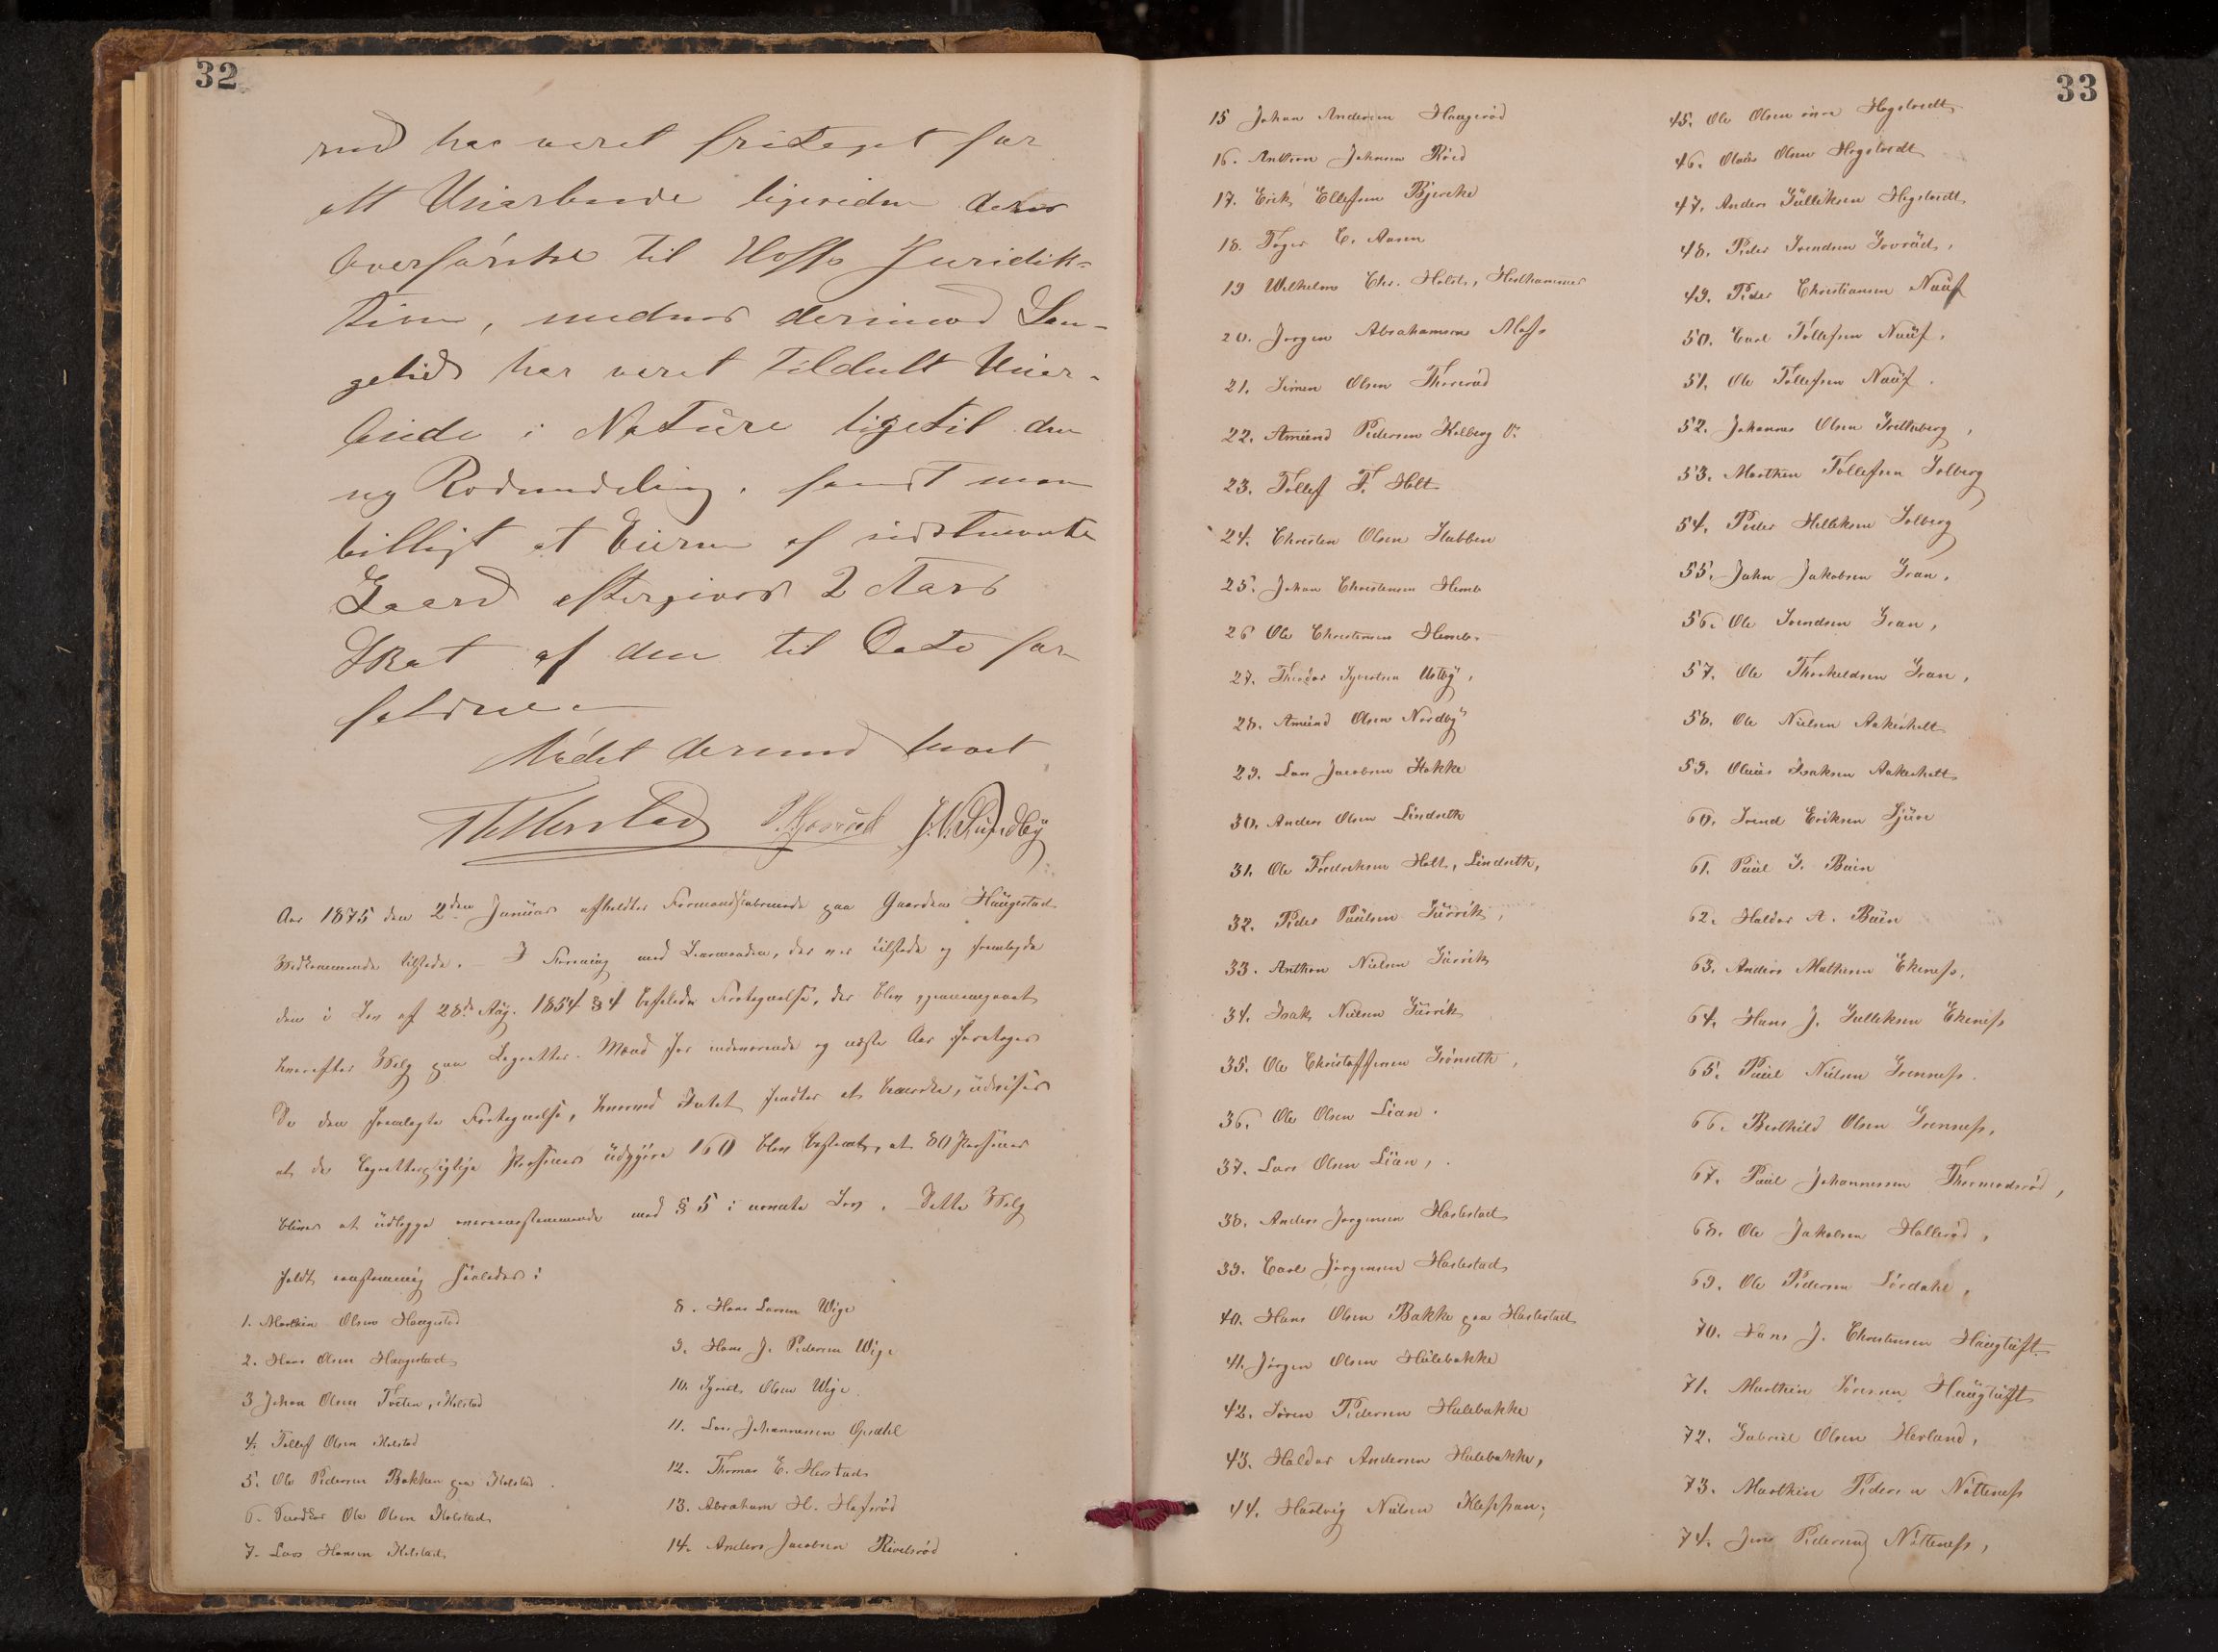 32
rud har været fritaget for
alt Veiarbeide ligesiden dens
Overførelse til Hoffs Juridik-
tion, medens derimod San-
gelid har været tildelt Veiar-
beide i Nature ligetil den
ny Rodeinddeling, fandt man
billigt at Eieren af sidstnævnte
Gaard eftergives 2 Aars
Skat af den til Dato for
faldne.
Mødet dermed hævet
J. N. Sundby
Aar 1875 den 2den Januar afholdtes Formandskabsmøde paa Gaarden Haugestad
Vedkommende tilstede. I Forening med Lensmanden, der var tilstede og fremlagde
den i Lov af 28de Aug. 1854 § 4 befalede Fortegnelse, der blev gjennemgaaet
hvorefter Valg paa Lagrettes-Mænd for indeværende og næste Aar foretoges
Da den fremlagte Fortegnelse, hvorved Intet fandtes at bemærke, udviser
at de lagrettepligtige Personer udgjøre 160 blev bestemt, at 80 Personer
bliver at udlægge overensstemmende med § 5 i nævnte Lov. Dette Valg
faldt enstemmig saaledes:
1. Marthin Olsen Haugestad
2. Hans Olsen Haugestad
3 Johan Olsen Tveten, Holstad
4. Tollef Olsen Holstad
5. Ole Pedersen Bakken paa Holstad
6. Ole Olsen Holstad
7. Lars Hansen Holstad
8. Hans Larsen Wige
9. Hans J. Pedersen Wige
10. Syvert Olsen Wige
11. Lars Johannessen Opdahl
12. Thomas E. Herstad
13. Abraham H. Hafsrød
14. Anders Jacobsen Rivelsrød
33
15 Johan Andersen Haugerød
16. Anthon Johnsen Röed
17. Erik Ellefsen Bjerke
18. Torger C. Aasen
19 Wilhelm Chr. Holst, Hedhammer
20. Jørgen Abrahamsen Moss
21. Simen Olsen Thorerud
22. Amund Pedersen Kolberg
23. Tollef T. Holt
24. Christen Olsen Stubben
25. Johan Christensen Hemb
26 Ole Christensen Hemb.
27. Theodor Syvertsen Ustby,
28. Amund Olsen Nordby
29. Lars Jacobsen Hakke
30. Anders Olsen Lindseth
31. Ole Fredriksen Holt, Lindseth,
32. Peder Paulsen Gurrik,
33. Anthon Nielsen Gurrik
34. Isak Nielsen Gurrik
35. Ole Christoffersen Grönseth,
36. Ole Olsen Lian.
37. Lars Olsen Lian,
38. Anders Jørgensen Haslestad
39. Carl Jørgensen Haslestad
40. Hans Olsen Bakke paa Haslestad
41. Jørgen Olsen Hulebakke
42. Søren Pedersen Hulebakke
43. Haldor Andersen Hulebakke,
44. Hartvig Nielsen Kleppan,
45. Ole Olsen øvre Hegstvedt
46. Olaus Olsen Hegstvedt
47. Anders Gulliksen Hegstvedt
48. Peder Svendsen Govrud,
49. Peder Christiansen Nauf
50. Carl Tollefsen Nauf,
51. Ole Tollefsen Nauf.
52. Johannes Olsen
53. Marthin Tollefsen Solberg
54. Peder Helleksen Solberg
55. John Jakobsen Gran,
56. Ole Svendsen Gran,
57. Ole Thorkildsen Gran,
58. Ole Nielsen Aakerholt
59. Olaus Isaksen Aakerholt
60. Svend Eriksen Sjue
61. Paul G. Buin
62. Haldor A. Buin
63. Anders Mathesen Ekeness,
64. Hans J. Gulliksen Ekeness
65. Paul Nielsen Grenness.
66. Berthild Olsen Grenness,
67. Paul Johannessen Thormodsrød,
68. Ole Jakobsen Hallerød,
69. Ole Pedersen Lørdahl,
70. Hans J. Christensen Haugtuft
71. Marthin Sørensen Haugtuft
72. Gabriel Olsen Herland,
73. Marthin Pedersen Nötteness
74. Jens Pedersen Nötteness,